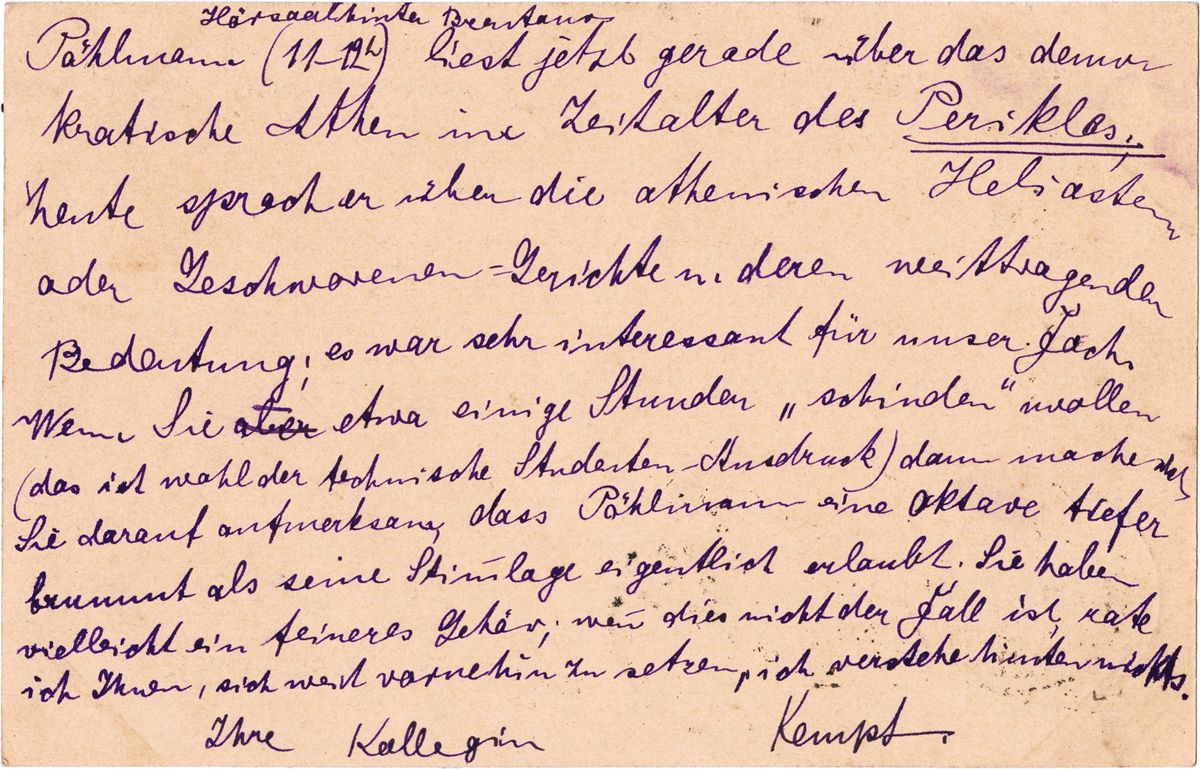 Hörsaal hinter Brentano
Pöhlmann (11-12h) liest jetzt gerade über das demo-
kratische Athen im Zeitalter des Perikles;
heute sprach er über die athenischen Heliasten
oder Geschworenen-Gerichte u. deren weittragenden
Bedeutung; es war sehr interessant für unser Fach.
Wenn Sie aber etwa einige Stunden „schinden" wollen
(das ist wohl der technische Studenten-Ausdruck) dann mache ich
Sie darauf aufmerksam, dass Pöhlmann eine Oktave tiefer
brummt als seine Stim̄lage eigentlich erlaubt. Sie haben
vielleicht ein feineres Gehör; wen̄ dies nicht der Fall ist, rate
ich Ihnen, sich weit vornehin zu setzen, ich verstehe hinten nichts.
Ihre Kollegin Kempf.